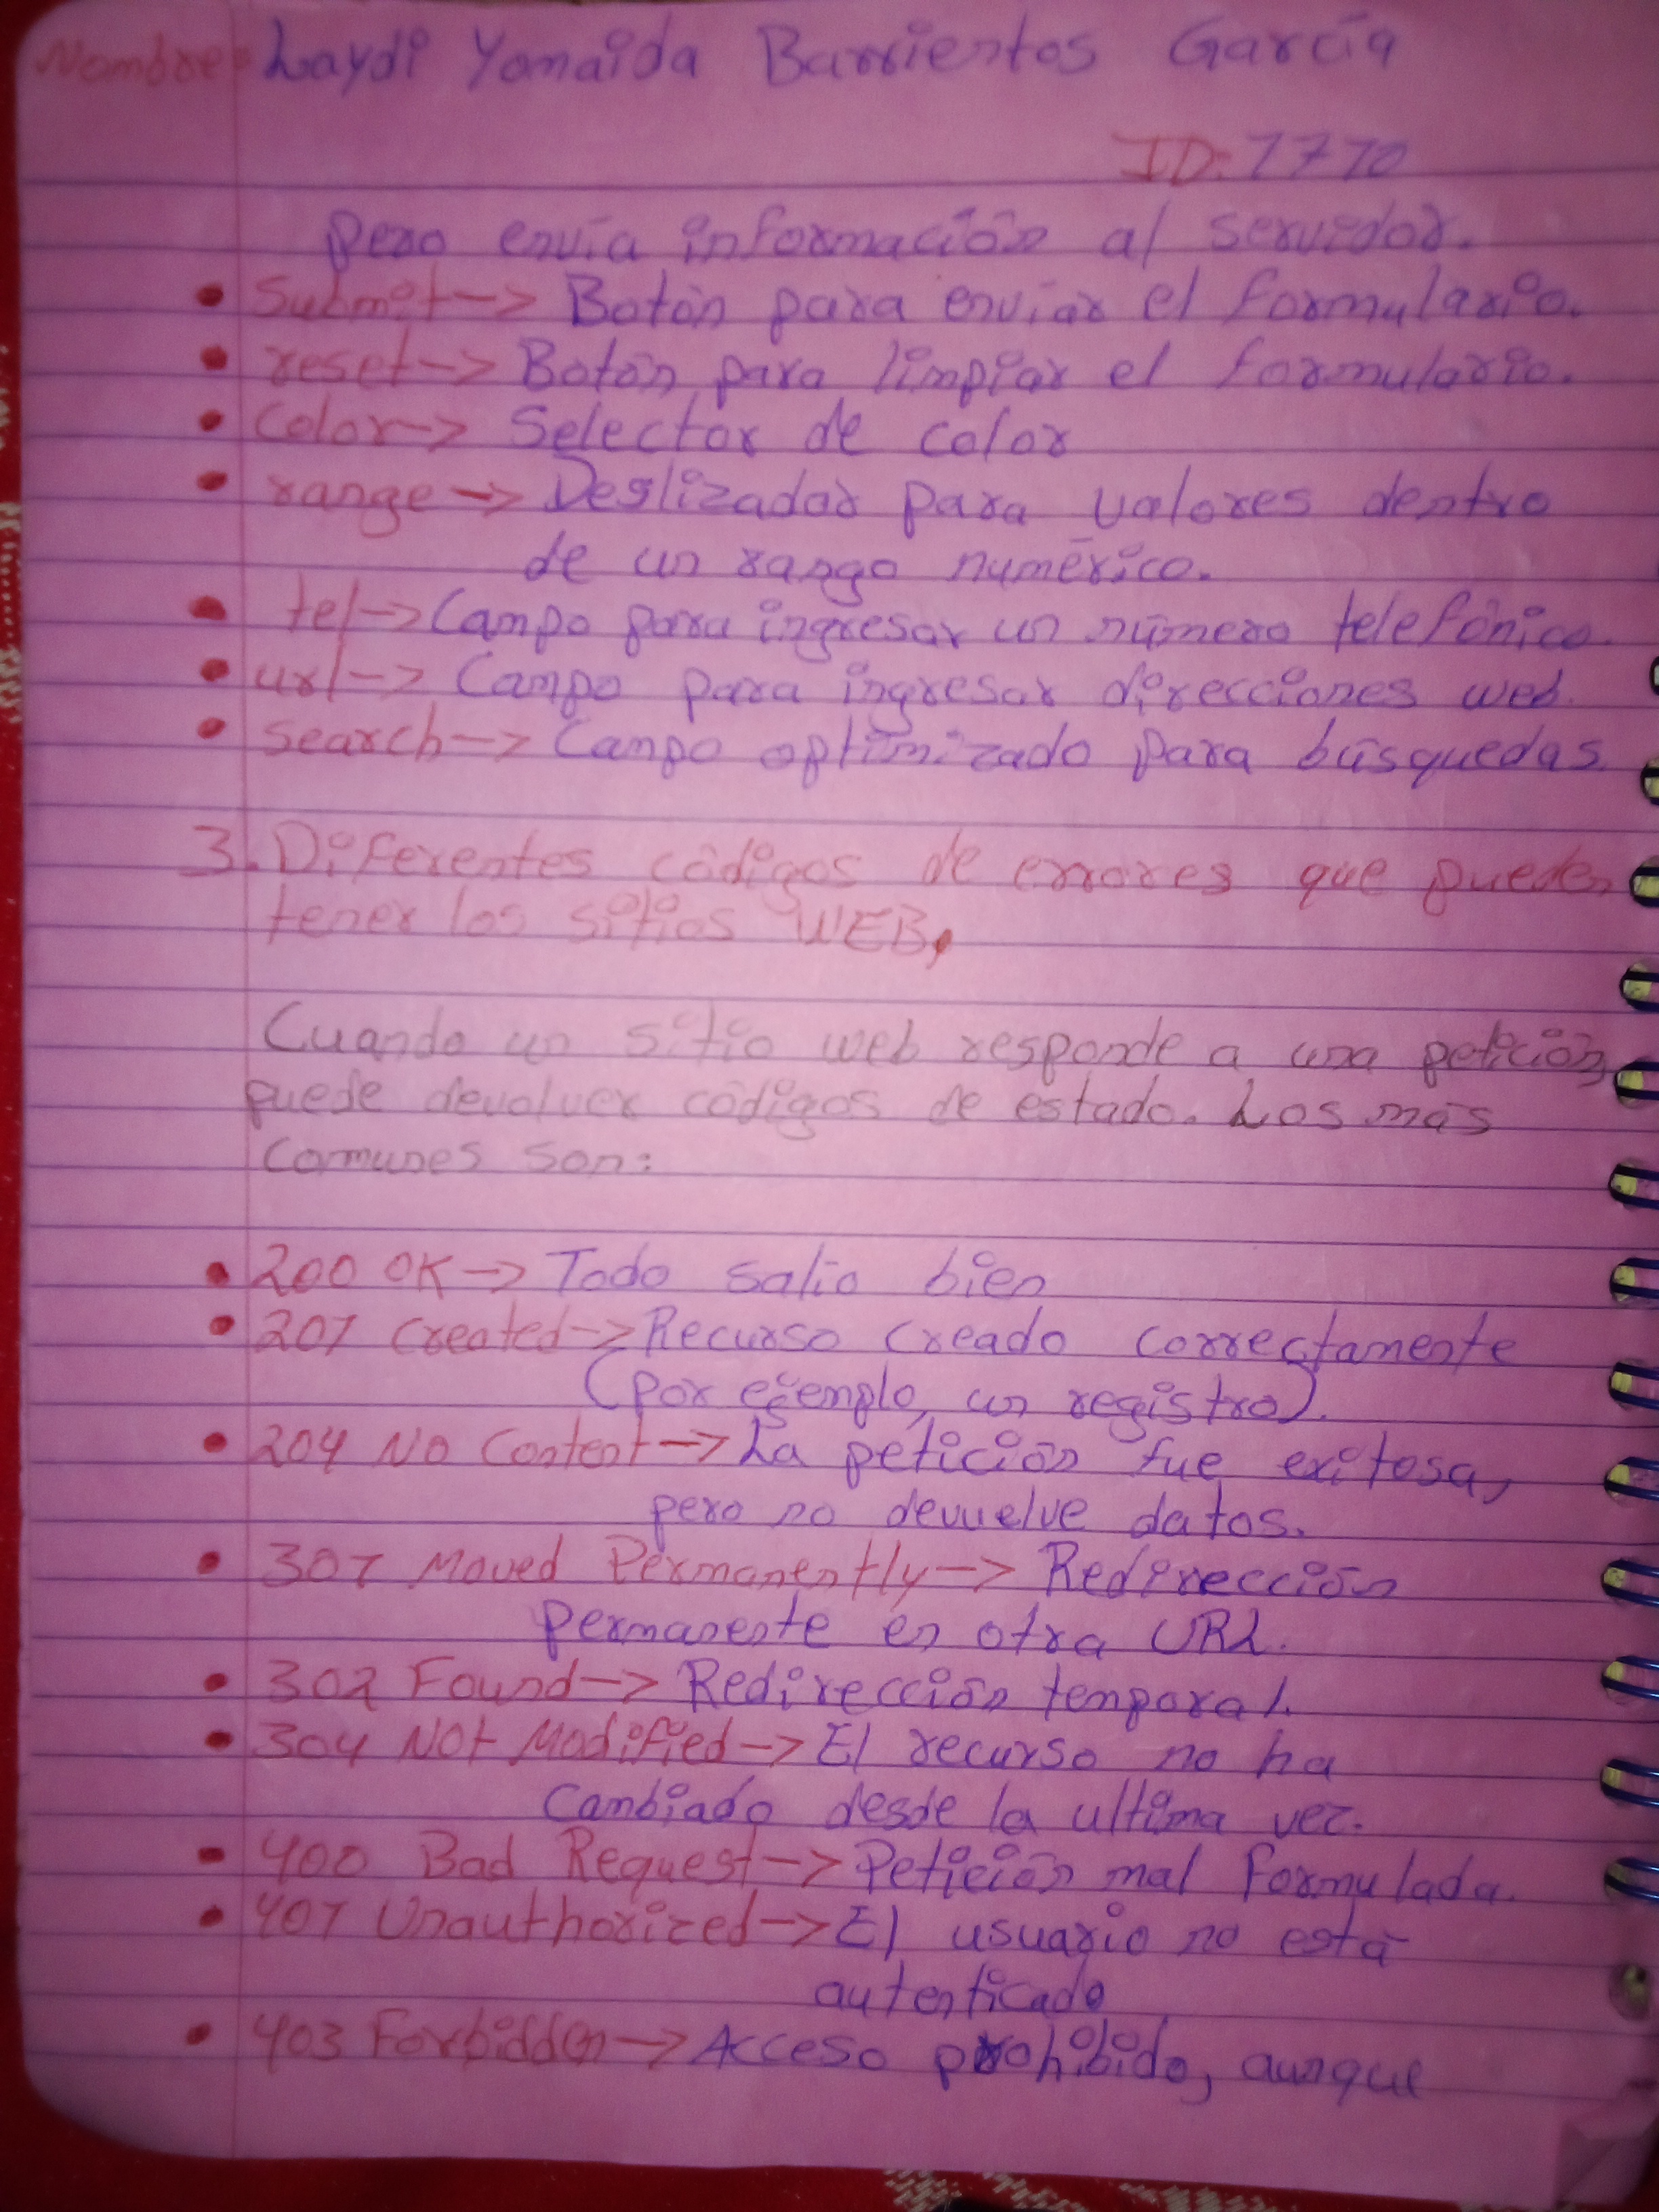 Nombre: Laydi Yomaida Barrientos García
ID: 1770
pero envía información al servidor.
• Submit --> Botón para enviar el formulario.
• reset --> Botón para limpiar el formulario.
• Color --> Selector de color
• range --> Deslizador para valores dentro
de un rango numérico.
• tel --> Campo para ingresar un número telefónico.
• url --> Campo para ingresar direcciones web.
• search --> Campo optimizado para búsquedas
3. Diferentes códigos de errores que pueden
tener los sitios WEB.
Cuando un sitio web responde a una petición,
puede devolver códigos de estado. Los más
comunes son:
• 200 OK --> Todo salio bien
• 201 Created --> Recurso creado correctamente
(por ejemplo, un registro).
• 204 NO Content --> La petición fue exitosa,
pero no devuelve datos.
• 301 Moved Permanently --> Redirección
permanente en otra URL.
• 302 Found --> Redirección temporal.
• 304 NOt Modified --> El recurso no ha
cambiado desde la ultima vez.
• 400 Bad Request --> Petición mal formulada.
• 401 Unauthorized --> El usuario no está
autenticado
• 403 Forbidden --> Acceso prohibido, aunque